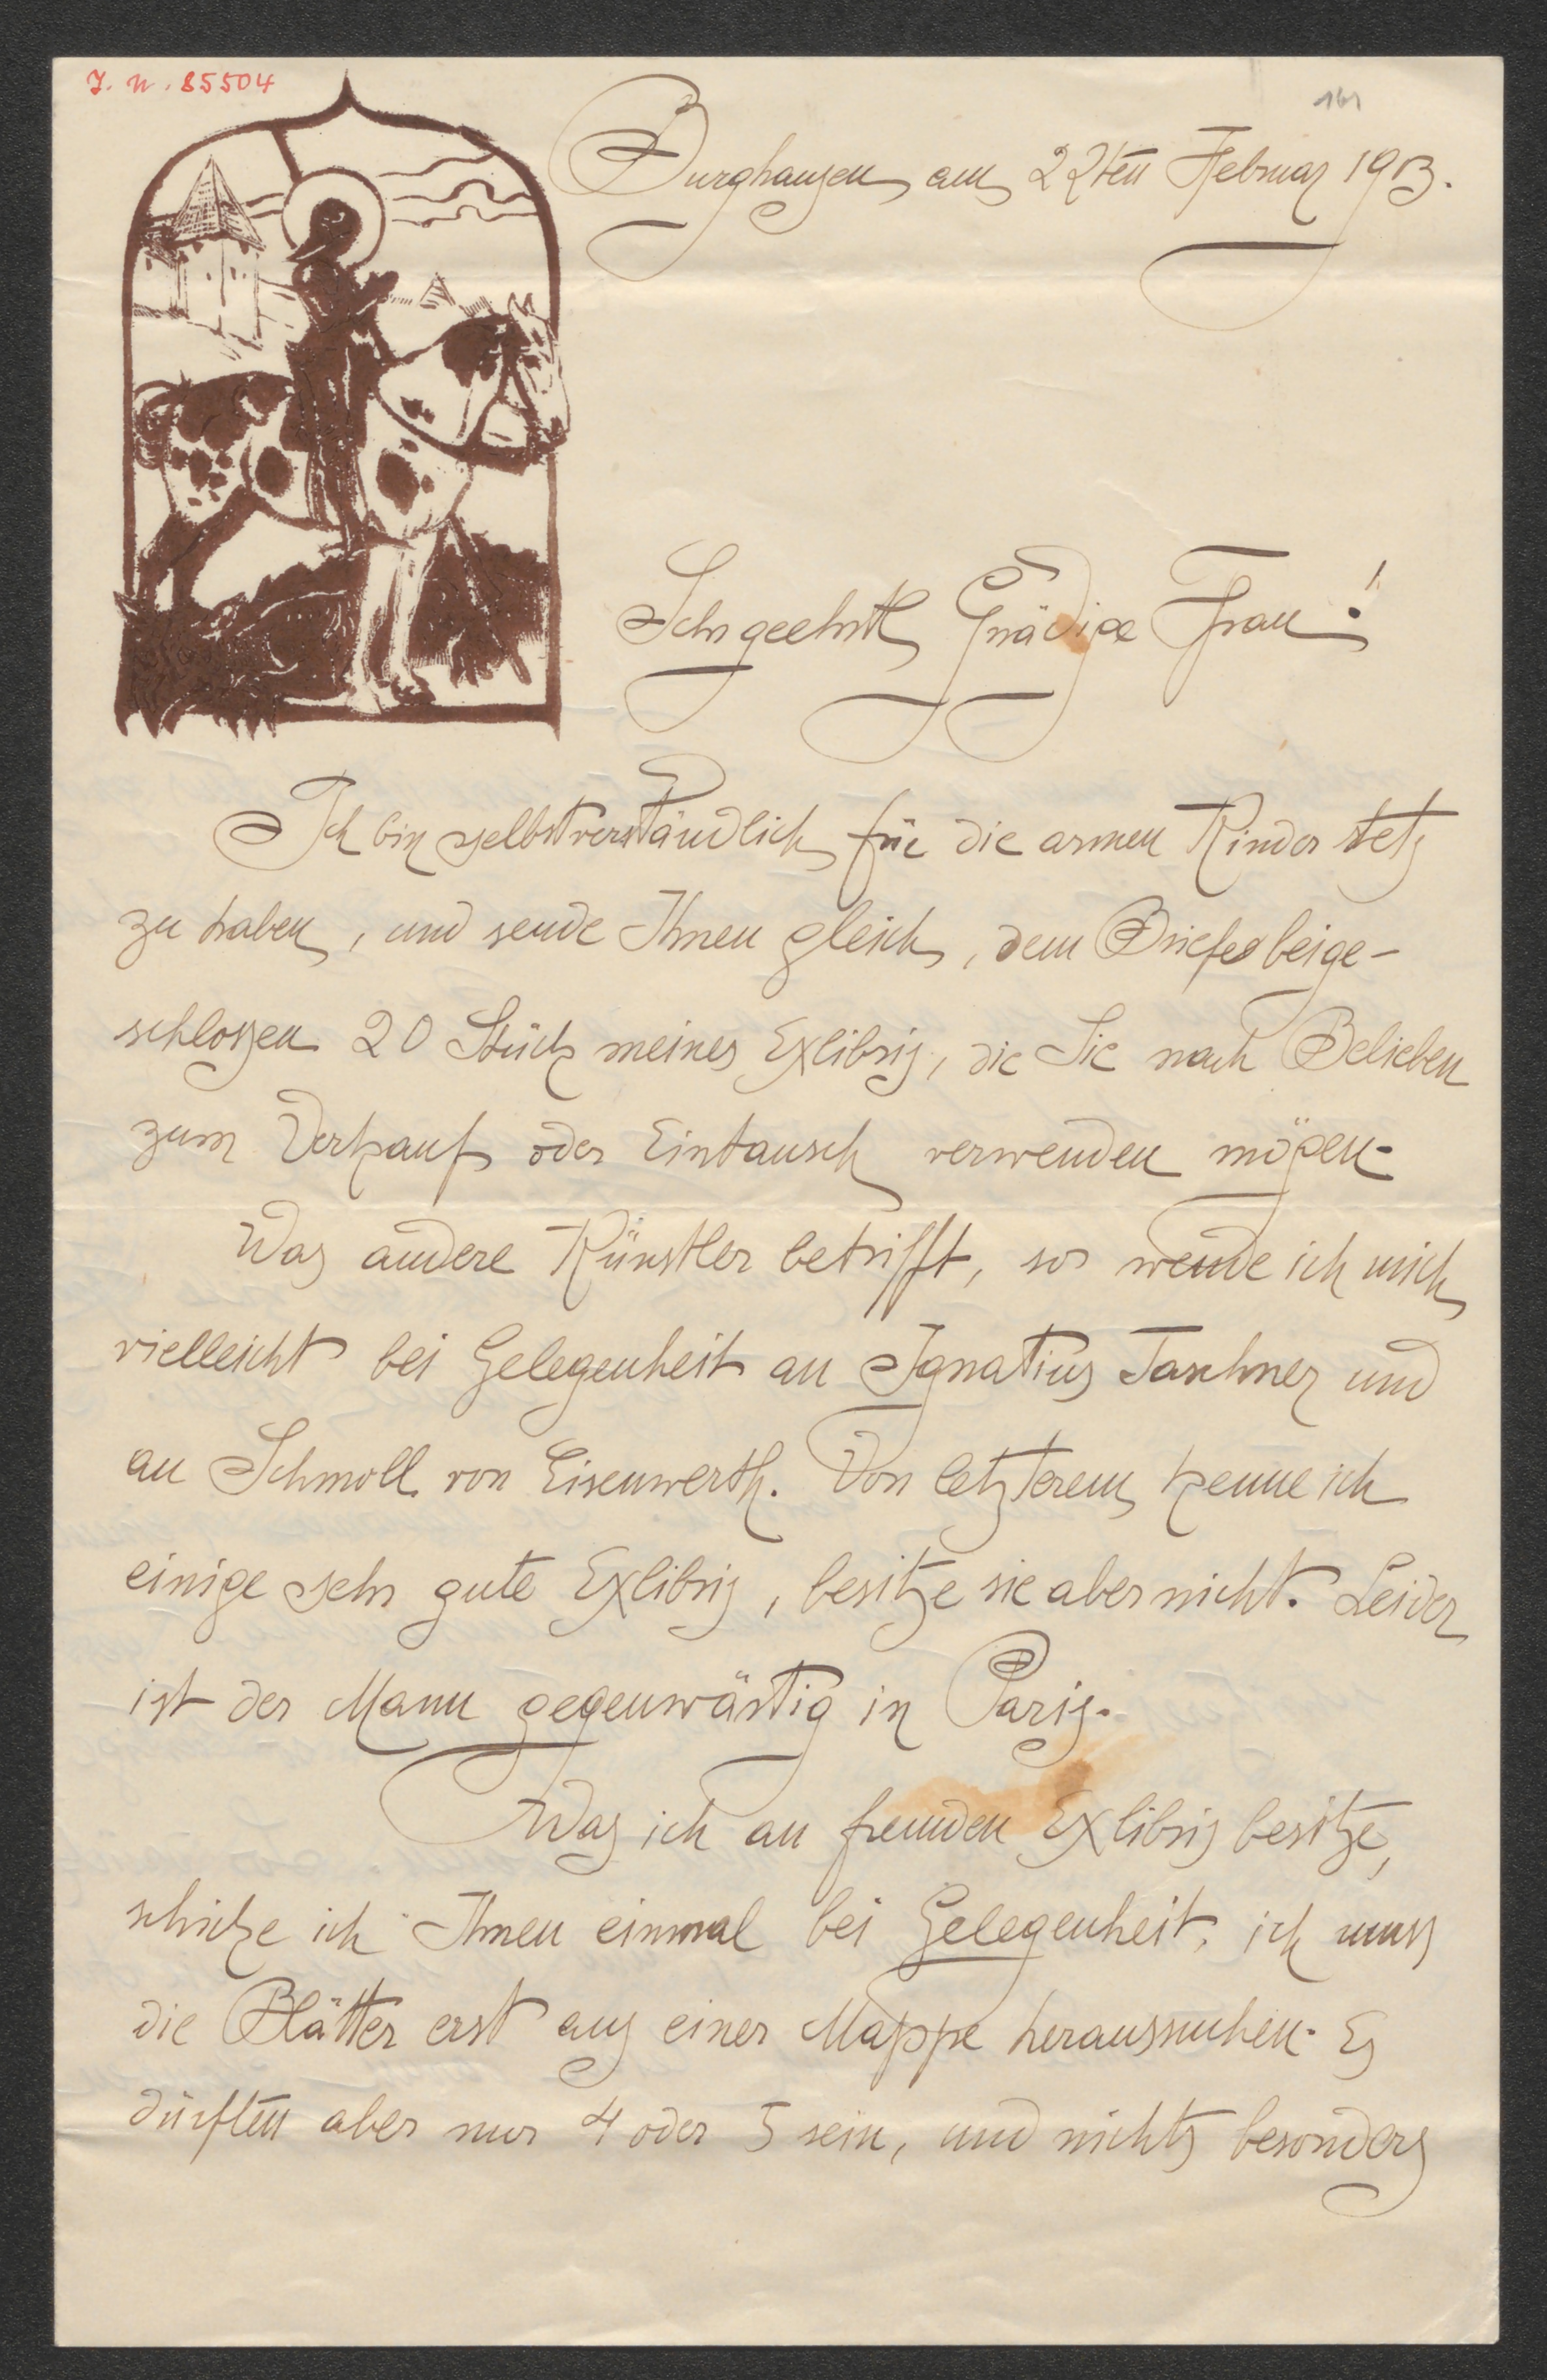 J. N. 85504
161
Burghausen am 22ten Februar 1903.
Sehr geehrte Gnädige Frau!
Ich bin selbstverständlich für die armen Kinder stets
zu haben, und sende Ihnen gleich, dem Briefe beige-
schlossen 20 Stück meines Exlibris, die Sie nach Belieben
zum Verkauf oder Eintausch verwenden mögen.
Was andere Künstler betrifft, so wende ich mich
vielleicht bei Gelegenheit an Ignatius Taschner und
an Schmoll von Eisenwerth. Von letzterem kenne ich
einige sehr gute Exlibris, besitze sie aber nicht. Leider
ist der Mann gegenwärtig in Paris.
Was ich an fremden Exlibris besitze,
schicke ich Ihnen einmal bei Gelegenheit, ich muss
die Blätter erst aus einer Mappe heraussuchen. Es
dürften aber nur 4 oder 5 sein, und nichts besonders